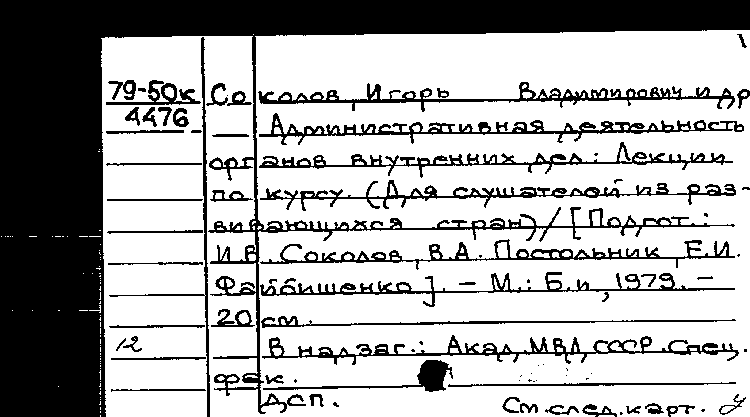 79-50к Соколов, Игорь Владимирович и др
4476 — Административная деятельность
органов внутренних дел: Лекции
по курсу. (Для слушателей из раз-
вивающихся стран) / [Подгот.:
И.В. Соколов, В.А. Постольник, Е.И.
Файбишенко]. – М.: Б.и, 1979. –
20 см.
12 В надзаг.: Акад. МВД СССР. Спец.
фак.
ДСП. См. след. карт.